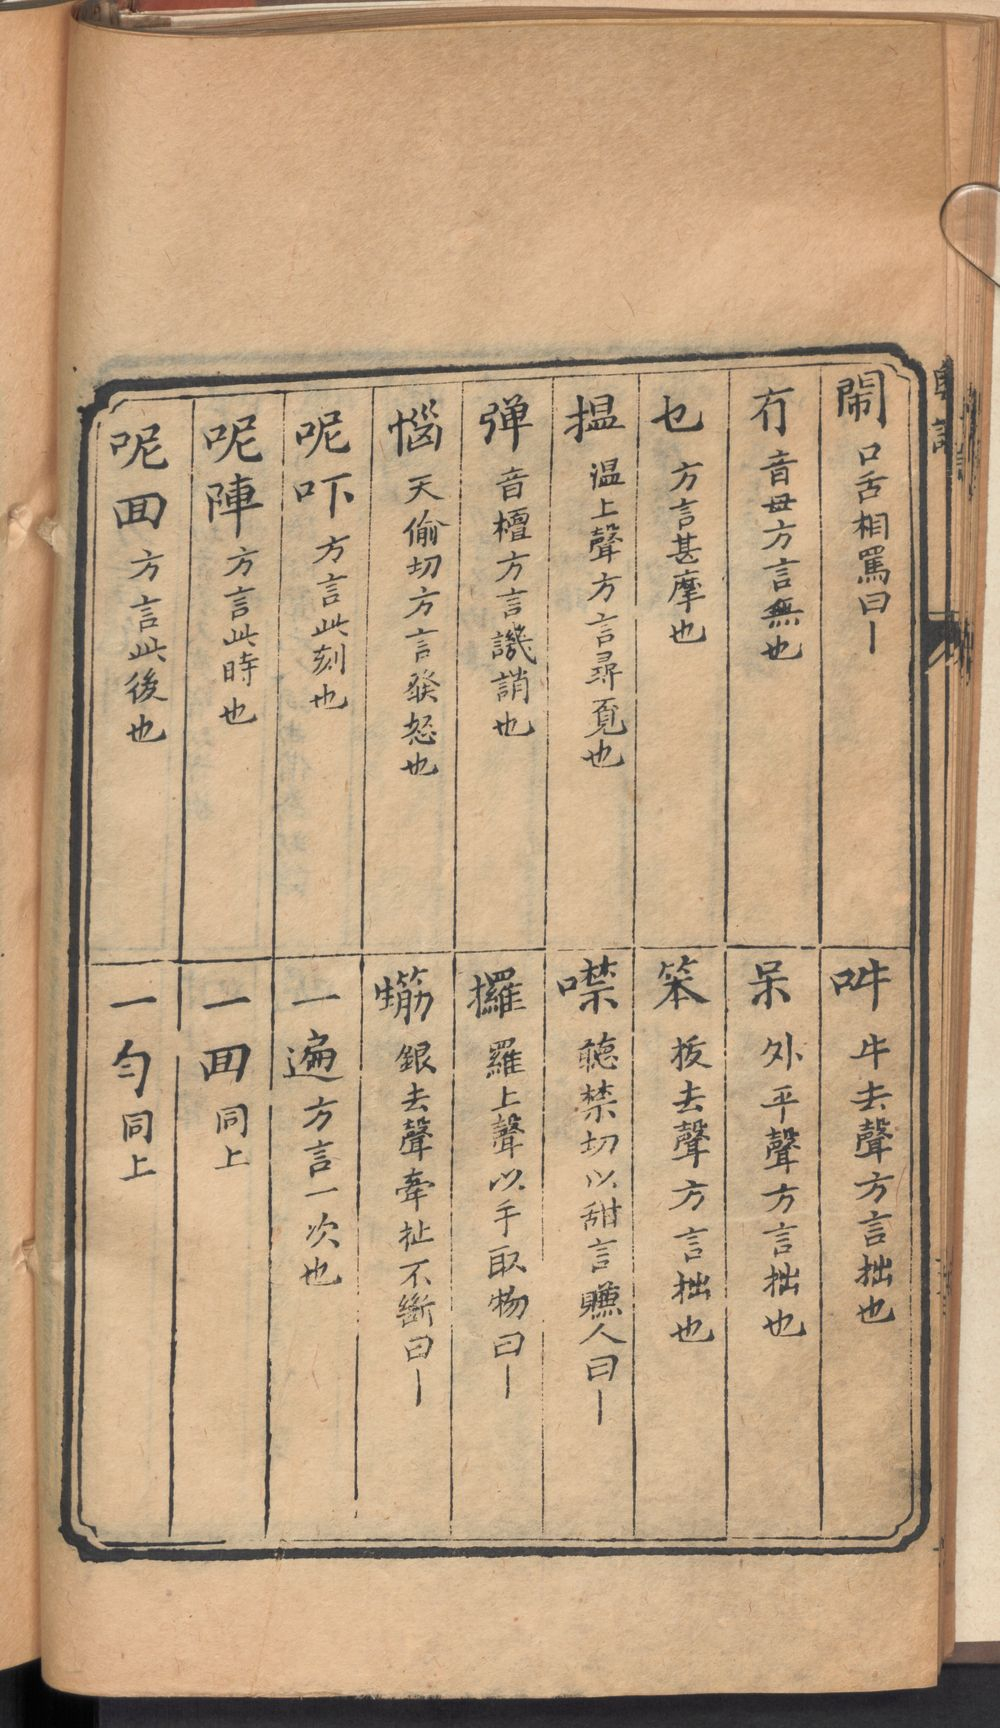 鬧 口舌相罵曰丨
冇 音毋方言無也
乜 方言甚摩也
揾 温上聲方言尋覓也
弹 音檀方言譏誚也
惱 天偷切方言發怒也
呢吓 方言此刻也
呢陣 方言此時也
呢囬 方言此後也
吽 牛去聲方言拙也
呆 外平聲方言拙也
笨 扳去聲方言拙也
噤 聴禁切以甜言賺人曰丨
攞 羅上聲以手取物曰丨
銀去聲牽扯不斷曰丨
一遍 方言一次也
一囬 同上
一匀 同上